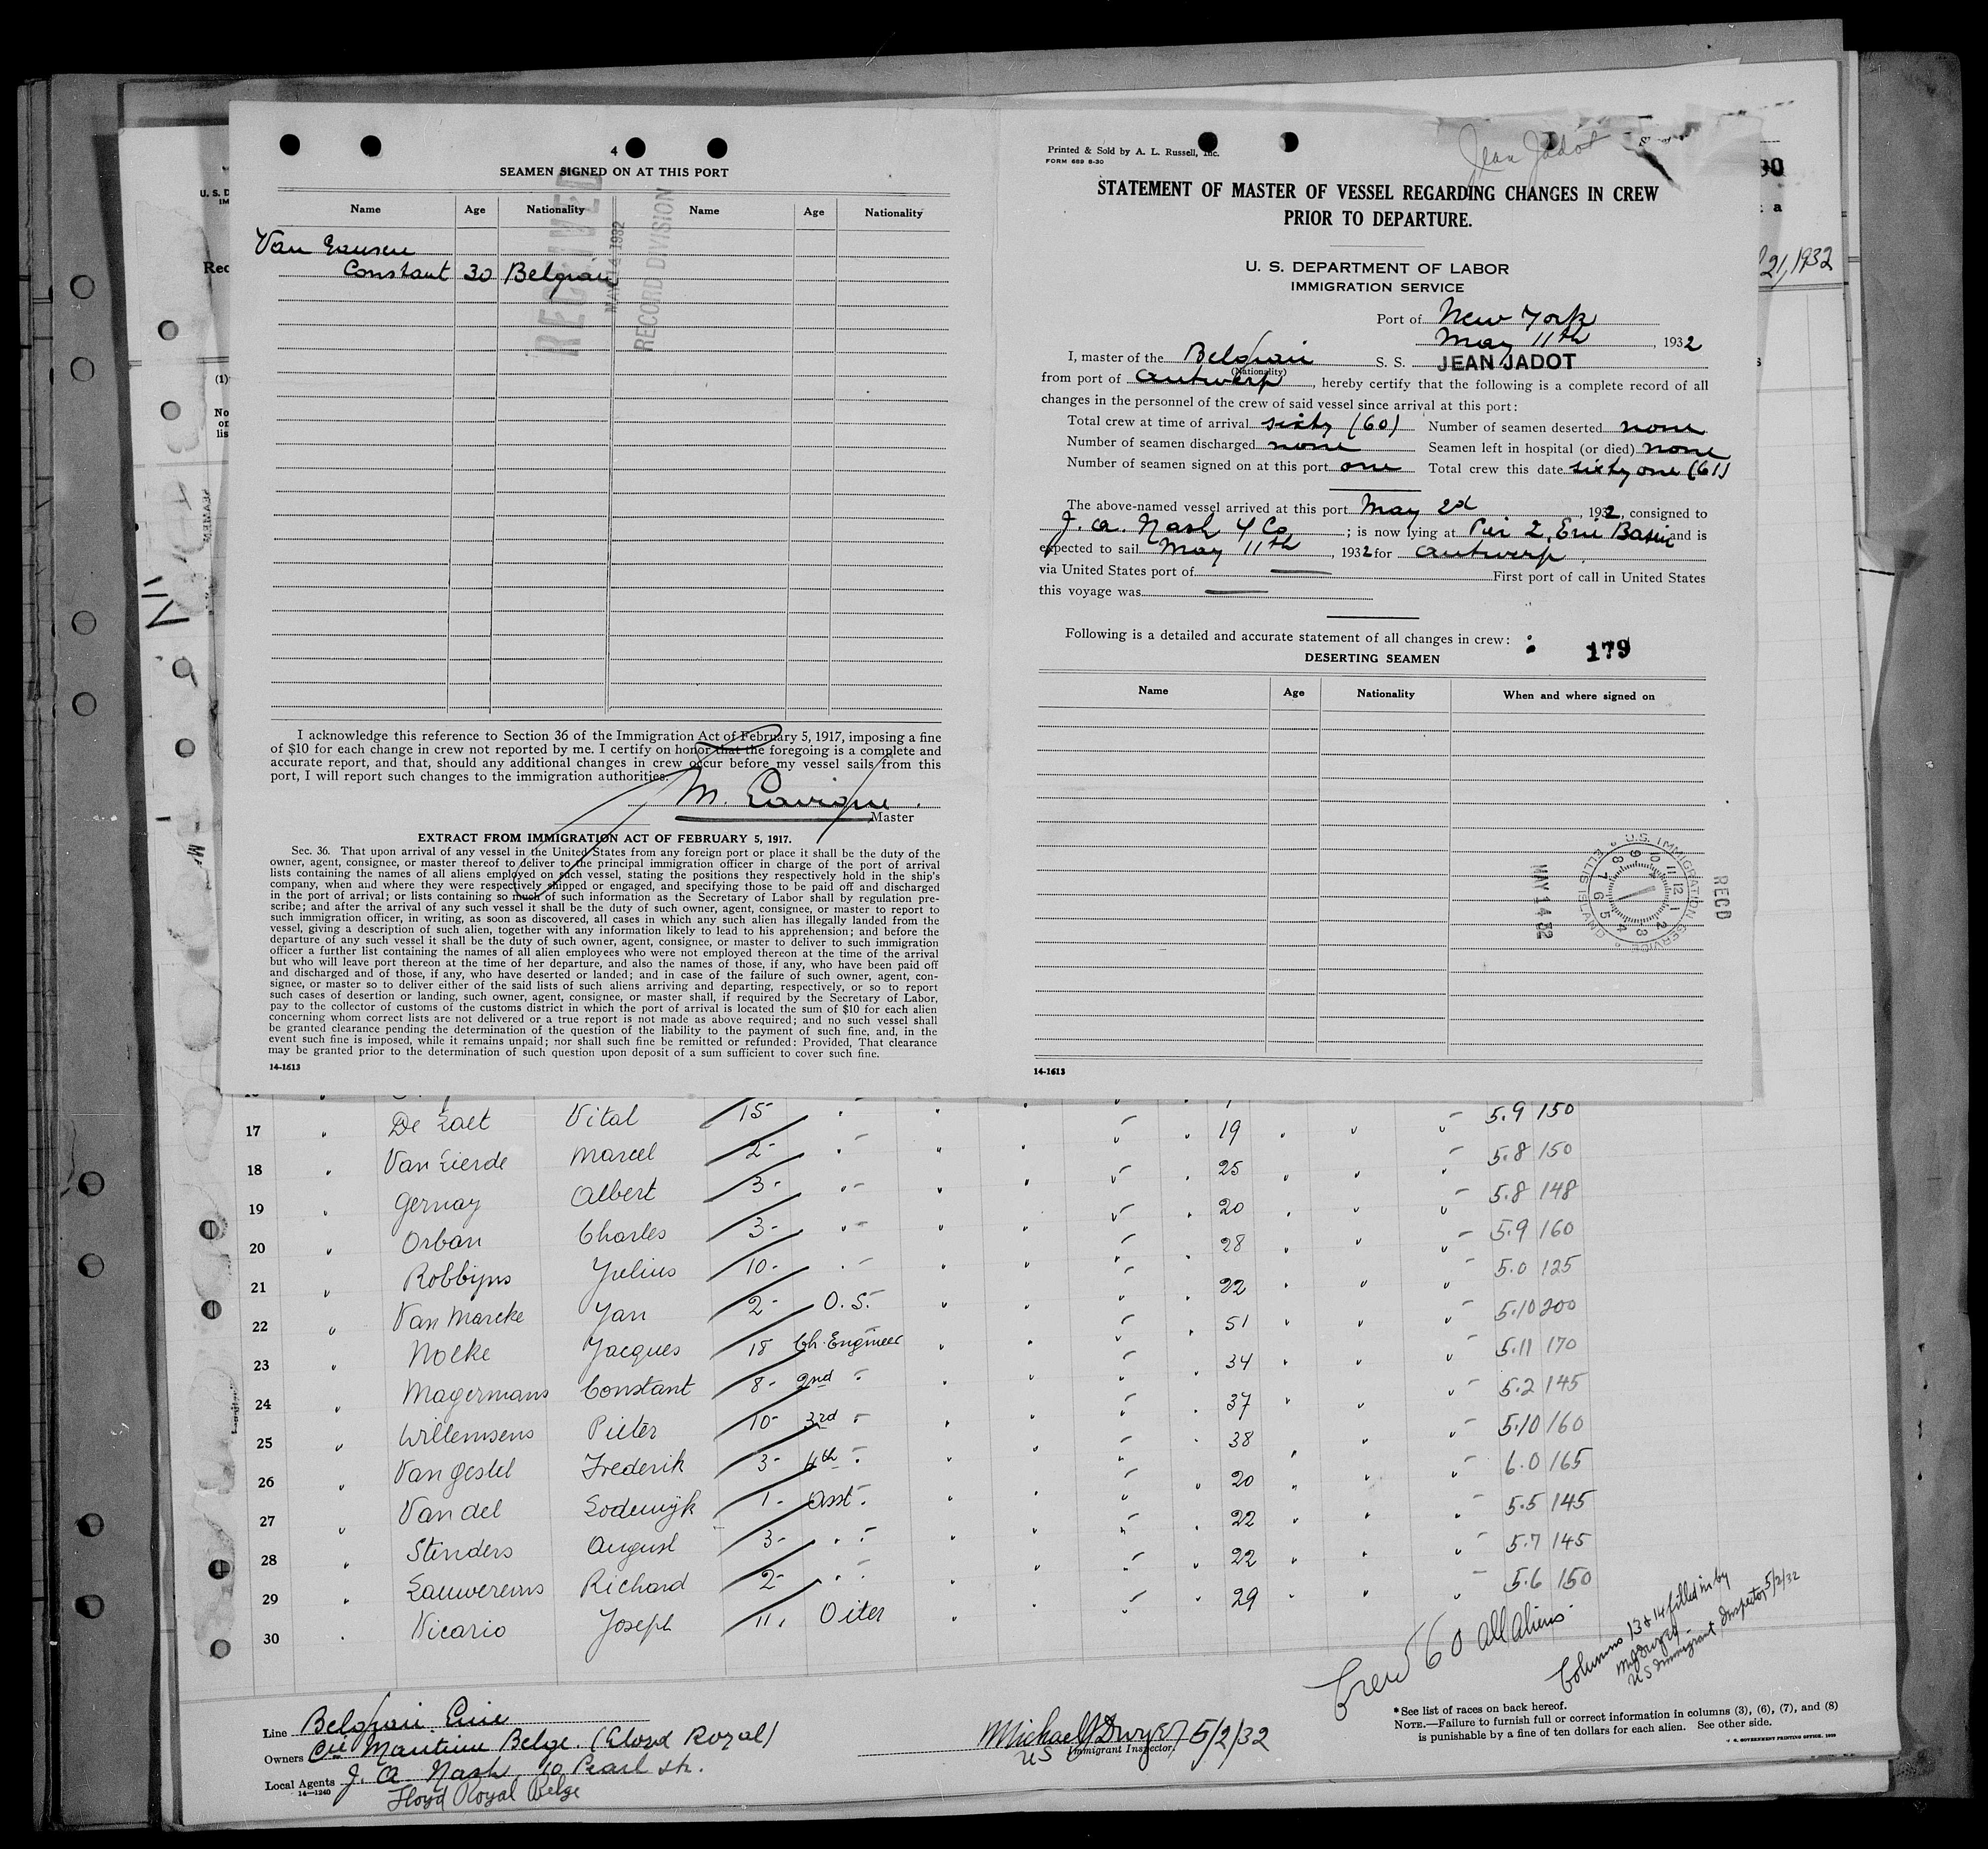 4
SEAMEN SIGNED ON AT THIS PORT
Name Age Nationality Name Age Nationality
Van
Constant 30 Belgian
RECEIVED
MAY 14 1932
RECORD DIVISION
I acknowledge this reference to Section 36 of the Immigration Act of February 5, 1917, imposing a fine
of $10 for each change in crew not reported by me. I certify on honor that the foregoing is a complete and
accurate report, and that, should any additional changes in crew occur before my vessel sails from this
port, I will report such changes to the immigration authorities.
M.
Master
EXTRACT FROM IMMIGRATION ACT OF FEBRUARY 5, 1917.
Sec. 36. That upon arrival of any vessel in the United States from any foreign port or place it shall be the duty of the
owner, agent, consignee, or master thereof to deliver to the principal immigration officer in charge of the port of arrival
lists containing the names of all aliens employed on such vessel, stating the positions they respectively hold in the ship's
company, when and where they were respectively shipped or engaged, and specifying those to be paid off and discharged
in the port of arrival; or lists containing so much of such information as the Secretary of Labor shall by regulation pre-
scribe; and after the arrival of any such vessel it shall be the duty of such owner, agent, consignee, or master to report to
such immigration officer, in writing, as soon as discovered, all cases in which any such alien has illegally landed from the
vessel, giving a description of such alien, together with any information likely to lead to his apprehension; and before the
departure of any such vessel it shall be the duty of such owner, agent, consignee, or master to deliver to such immigration
officer a further list containing the names of all alien employees who were not employed thereon at the time of the arrival
but who will leave port thereon at the time of her departure, and also the names of those, if any, who have been paid off
and discharged and of those, if any, who have deserted or landed; and in case of the failure of such owner, agent, con-
signee, or master so to deliver either of the said lists of such aliens arriving and departing, respectively, or so to report
such cases of desertion or landing, such owner, agent, consignee, or master shall, if required by the Secretary of Labor,
pay to the collector of customs of the customs district in which the port of arrival is located the sum of $10 for each alien
concerning whom correct lists are not delivered or a true report is not made as above required; and no such vessel shall
be granted clearance pending the determination of the question of the liability to the payment of such fine, and, in the
event such fine is imposed, while it remains unpaid; nor shall such fine be remitted or refunded: Provided, That clearance
may be granted prior to the determination of such question upon deposit of a sum sufficient to cover such fine.
14-1613
Printed & Sold by A. L. Russell, Inc.
FORM 689 8-30
Jean Jadot
STATEMENT OF MASTER OF VESSEL REGARDING CHANGES IN CREW
PRIOR TO DEPARTURE.
U. S. DEPARTMENT OF LABOR
IMMIGRATION SERVICE
Port of New York
May 11th, 1932
I, master of the Belgian S. S. JEAN JADOT
(Nationality)
from port of Antwerp, hereby certify that the following is a complete record of all
changes in the personnel of the crew of said vessel since arrival at this port:
Total crew at time of arrival sixty (60) Number of seamen deserted none
Number of seamen discharged none Seamen left in hospital (or died) none
Number of seamen signed on at this port one Total crew this date sixty one (61)
The above-named vessel arrived at this port May 2d, 1932, consigned to
J. A. Nash & Co; is now lying at Pier 2, Erie Basin and is
expected to sail May 11th, 1932 for Antwerp.
via United States port of — First port of call in United States
this voyage was —
Following is a detailed and accurate statement of all changes in crew:
179
DESERTING SEAMEN
Name Age Nationality When and where signed on
U.S. IMMIGRATION SERVICE ELLIS ISLAND
RECD
MAY 14 32
14-1613
21, 1932
17 De Laet Vital 15- 19 5.9 150
18 Van Lierde Marcel 2- 25 5.8 150
19 Gernay Albert 3- 20 5.8 148
20 Orban Charles 3- 28 5.9 160
21 Robbijns Julius 10- 22 5.0 125
22 Van Marcke Jan 2- O.S. 51 5.10 200
23 Nocke Jacques 18 Ch. Engineer 34 5.11 170
24 Magermans Constant 8- 2nd 37 5.2 145
25 Willemsens Pieter 10- 3rd 38 5.10 160
26 Van Gestel Frederik 3- 4th 20 6.0 165
27 Van del Lodewijk 1- Asst. 22 5.5 145
28 Stenders August 3- 22 5.7 145
29 Lauwereins Richard 2- 29 5.6 150
30 Vicario Joseph 11. Oiler
Crew 60 all aliens.
Columns 13 & 14 filled in by
US Immigrant Inspector 5/2/32
Line Belgian Line
Owners Cie Maritime Belge. (Lloyd Royal)
Local Agents J. A. Nash, 10 Pearl St.
14-1240
Lloyd Royal Belge
Michael J Dwyer 5/2/32
US Immigrant Inspector.
*See list of races on back hereof.
NOTE.—Failure to furnish full or correct information in columns (3), (6), (7), and (8)
is punishable by a fine of ten dollars for each alien. See other side.
U. S. GOVERNMENT PRINTING OFFICE: 1930